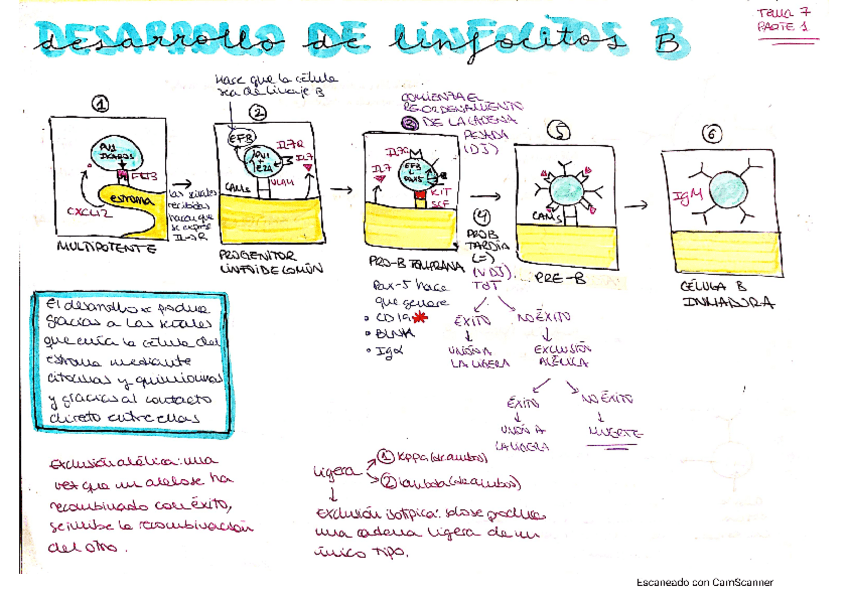 desarrollo de linfocitos B
Tema 7
PARTE 1
Hace que la célula
sea de linaje B
COMIENZA EL
REORDENAMIENTO
DE LA CADENA
PESADA
(DJ)
1
PU1
IKAROS
FLT3
estroma
CXCL12
MULTIPOTENTE
Las señales
recibidas
hacen que
se exprese
IL-7R
2
EFB
PU1
+
E2A
IL7R
IL7
VLA4
CAMs
PROGENITOR
LINFOIDE COMÚN
3
IL7R
IL7
EFB
PAX5
KIT
SCF
PRO-B TEMPRANA
Pax-5 hace
que genere
• CD19
• BLNK
• Igα
4
PROB
TARDÍA
(=)
(VDJ).
TdT
ÉXITO
NO ÉXITO
UNIÓN A
LA LIGERA
EXCLUSIÓN
ALÉLICA
ÉXITO
NO ÉXITO
UNIÓN A
LA LIGERA
MUERTE
5
CAMs
PRE-B
6
IgM
CÉLULA B
INMADURA
El desarrollo se produce
gracias a las señales
que envía la célula del
estroma mediante
citocinas y quimiocinas
y gracias al contacto
directo entre ellas
Exclusión alélica: una
vez que un alelo se ha
recombinado con éxito,
se inhibe la recombinación
del otro.
Ligera
1 Kappa
2 lambda
Exclusión isotípica: solo se produce
una cadena ligera de un
único tipo.
Escaneado con CamScanner